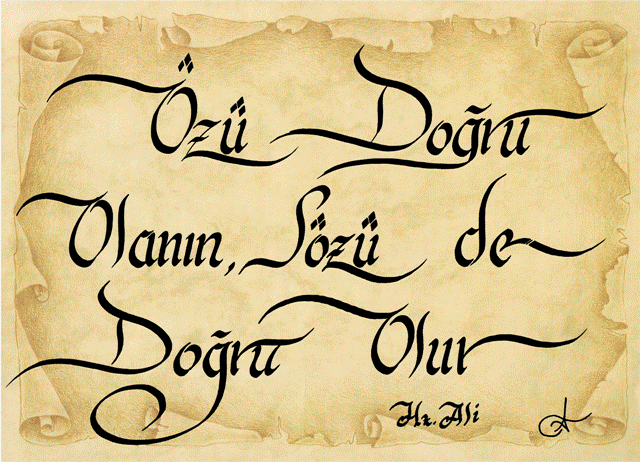 Özü Doğru
Olanın, Sözü de
Doğru Olur
Hz. Ali